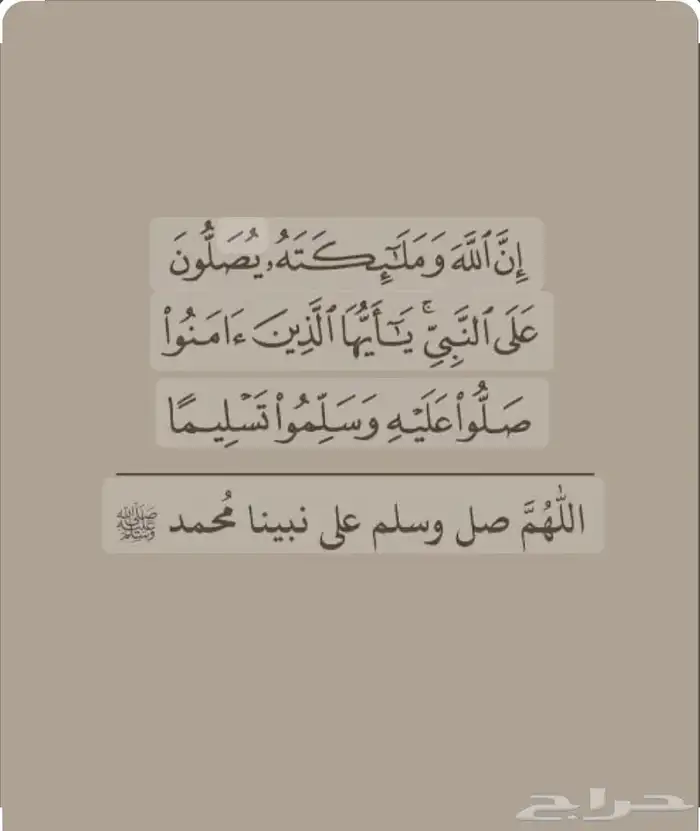 إِنَّ ٱللَّهَ وَمَلَـٰٓئِكَتَهُۥ يُصَلُّونَ
عَلَى ٱلنَّبِىِّ ۚ يَـٰٓأَيُّهَا ٱلَّذِينَ ءَامَنُوا۟
صَلُّوا۟ عَلَيْهِ وَسَلِّمُوا۟ تَسْلِيمًا
اللَّهُمَّ صل وسلم على نبينا مُحمد ﷺ
حراج